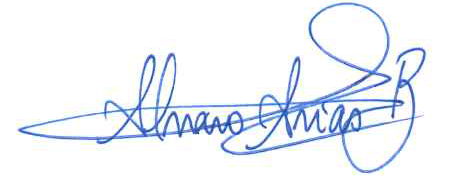 Alvaro Arias R